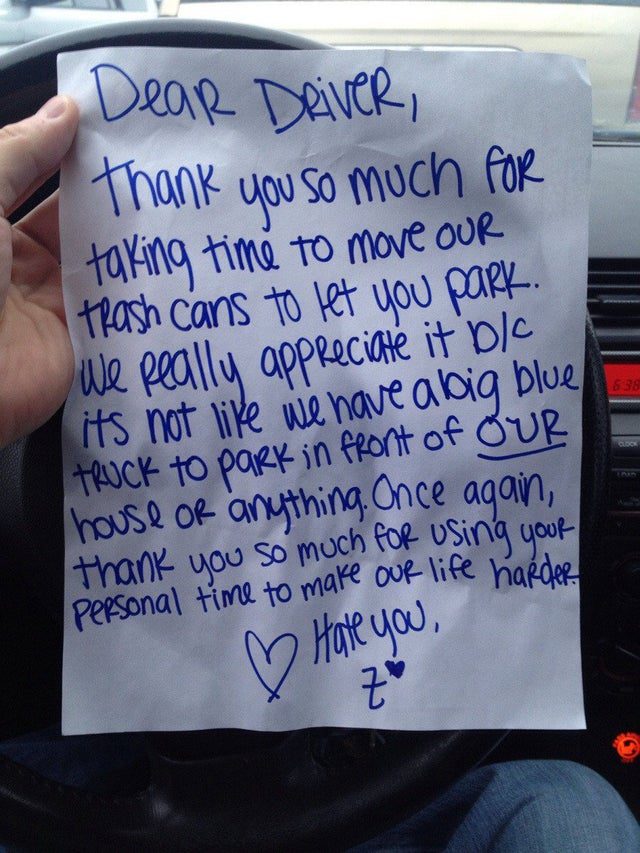 Dear Driver,
Thank you so much for
taking time to move our
trash cans to let you park.
We really appreciate it b/c
its not like we have a big blue
truck to park in front of OUR
house or anything. Once again,
thank you so much for using your
personal time to make our life harder
Hate you,
Z
6:38
CLOCK
LOAD